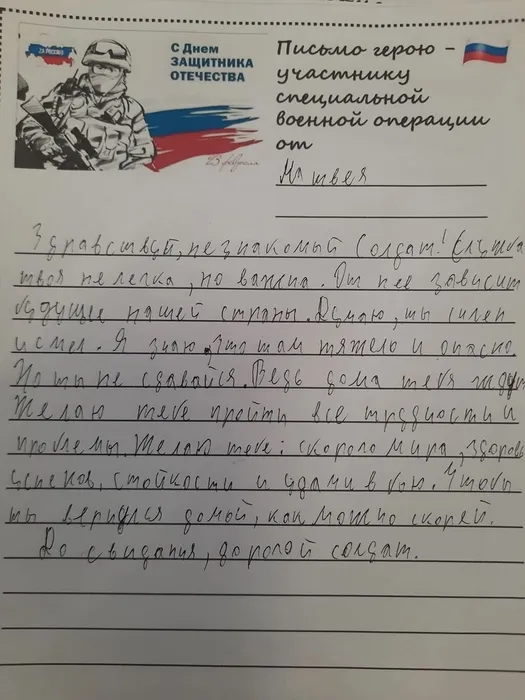 ZА РОССИЮ
С Днем
ЗАЩИТНИКА
ОТЕЧЕСТВА
23 февраля
Письмо герою –
участнику
специальной
военной операции
от
Матвея
Здравствуй, незнакомый Солдат! Служба
твоя нелегка, но важна. От нее зависит
будущие нашей страны. Думаю, ты силен
и смел. Я знаю, что там тяжело и опасно.
Но ты не сдавайся. Ведь дома тебя ждут.
Желаю тебе пройти все трудности и
проблемы. Желаю тебе: скорого мира, здоровь
успехов, стойкости и удачи в бою. Чтобы
ты вернулся домой, как можно скорей.
До свидания, дорогой солдат.